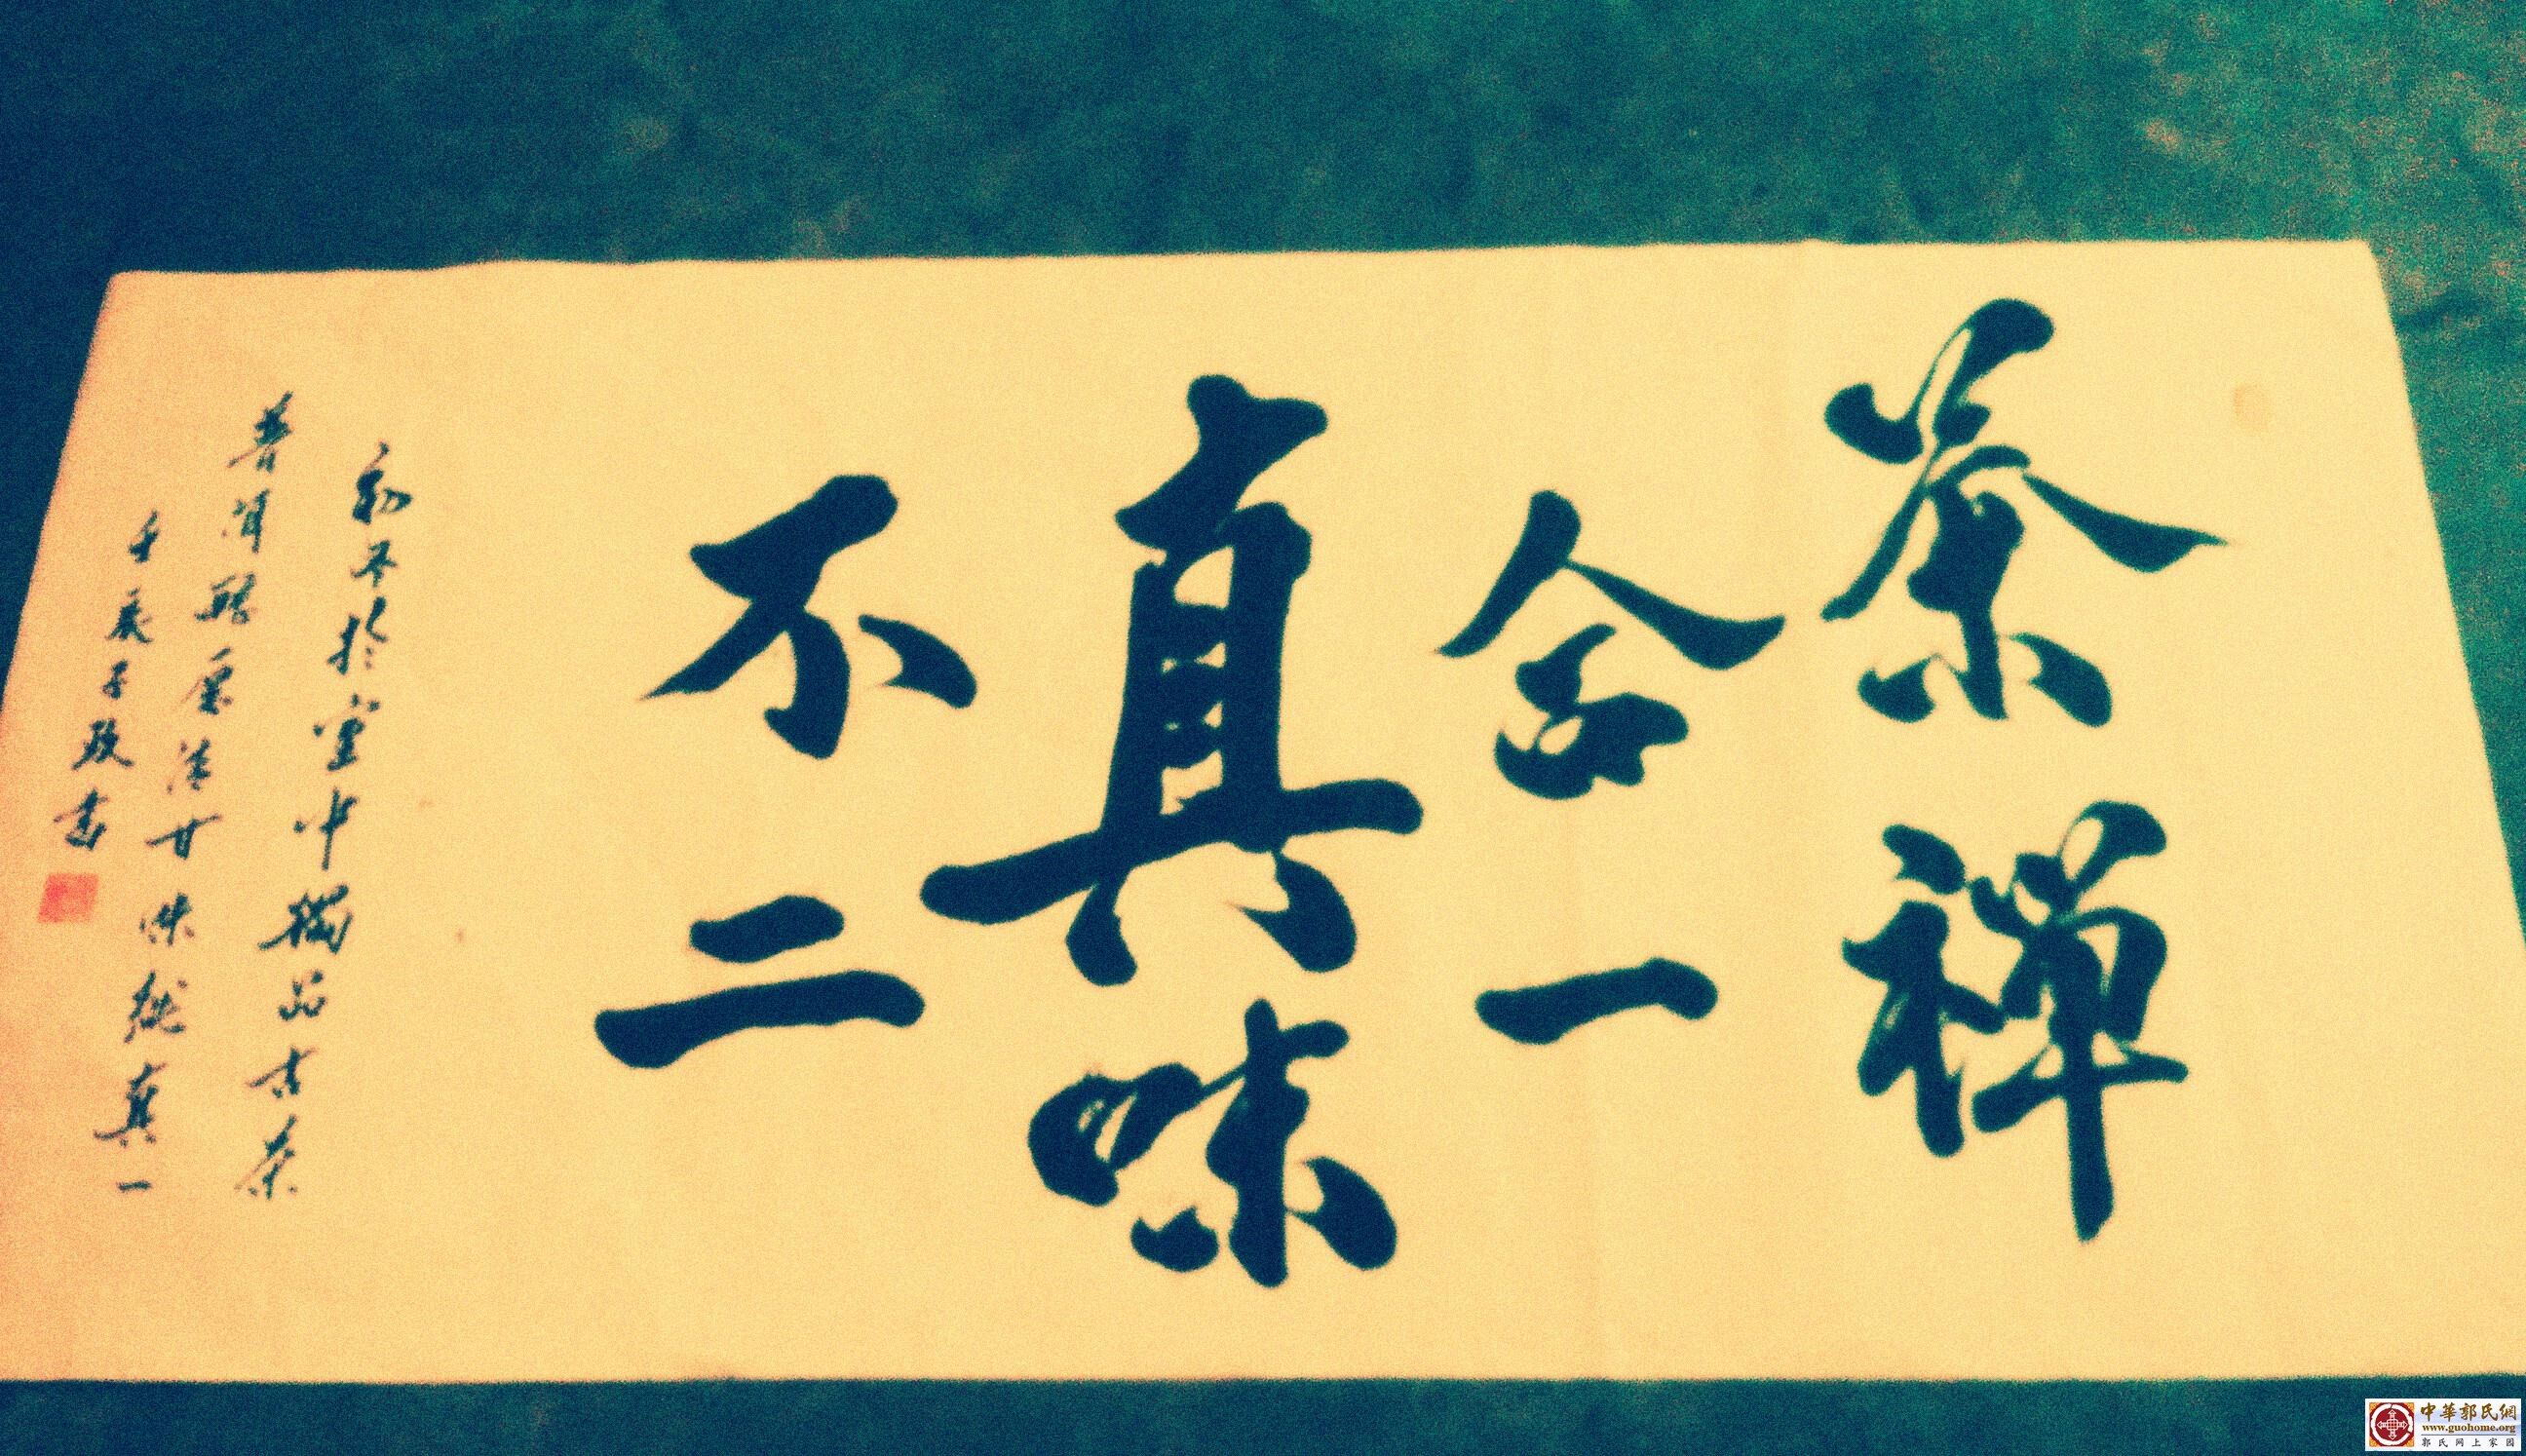 茶禅
合一
真味
不二
於室中獨品古茶
甘味純真一
壬辰子政書
中華郭氏網
www.guohome.org
郭氏网上家园